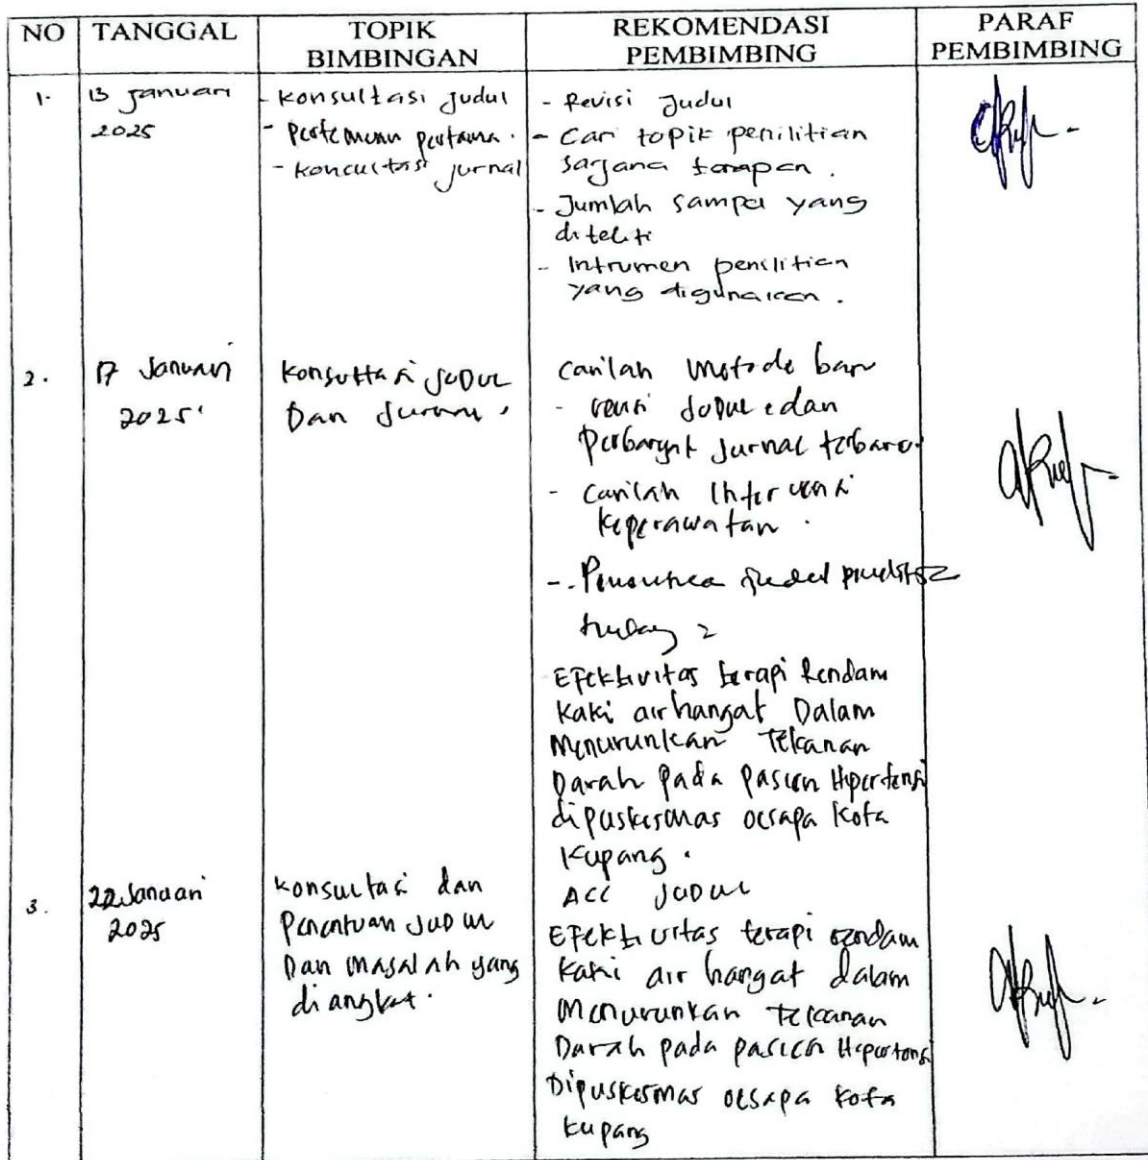 NO TANGGAL TOPIK BIMBINGAN REKOMENDASI PEMBIMBING PARAF PEMBIMBING
1. 13 Januari
2025
- Konsultasi Judul
- Pertemuan pertama.
- Koncultasi jurnal
- Revisi Judul
- Cari topik penilitian
sarjana terapan.
- Jumlah sampel yang
diteliti
- Intrumen penilitian
yang digunakan.
2. 17 Januari
2025
Konsultasi Judul
Dan Jurnal,
Carilah Metode baru
- revisi Judul dan
Perbanyak Jurnal terbaru.
- Carilah Intervensi
Keperawatan.
Efektivitas terapi Rendam
Kaki air hangat Dalam
Menurunkan Tekanan
Darah Pada Pasien Hipertensi
dipuskesmas oesapa Kota
Kupang.
3. 22 Januari
2025
Konsultasi dan
Penentuan Judul
Dan Masalah yang
diangkat.
ACC Judul
Efektivitas terapi rendam
Kaki air hangat dalam
Menurunkan tekanan
Darah pada pasien Hipertensi
Dipuskesmas oesapa Kota
Kupang